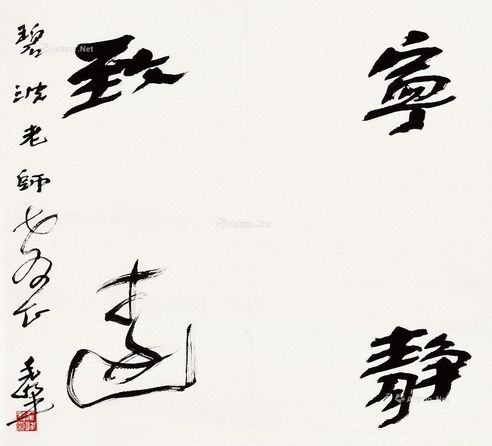 寧靜
致遠
碧波老師
Artron.Net
Artron.Net